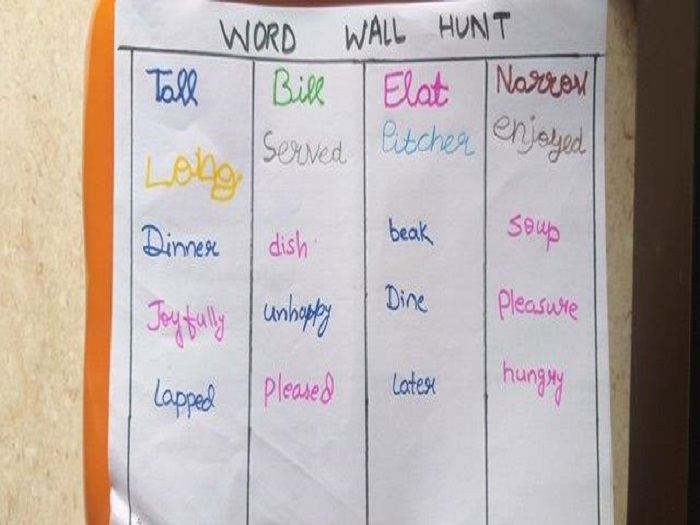 WORD WALL HUNT
Tall Bill Elat Narrow
Long Served Pitcher enjoyed
Dinner dish beak soup
Joyfully unhappy Dine Pleasure
Lapped pleased Later hungry